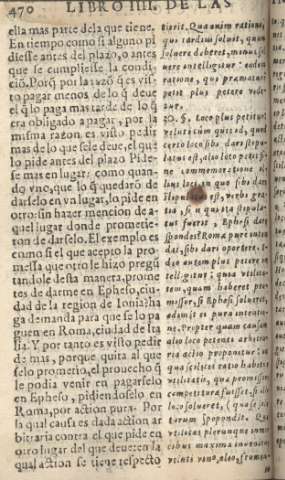 470 LIBRO IIII. DE LAS
ella mas parte dela que tiene.
En tiempo como si alguno pi
diesse antes del plazo, o antes
que se cumpliesse la condi
ció. Porq̃ por la razō q̃ es vis
to pagar menos de lo q̃ deue
el q̃ lo paga mas tarde de lo q̃
era obligado a pagar, por la
misma razon es visto pedir
mas de lo que se le deue, el que
lo pide antes del plazo Pide-
se mas en lugar: como quan-
do vno, que lo q̃ quedarō de
darselo en vn lugar, lo pide en
otro: sin hazer mencion de a-
quel lugar donde prometie-
ron de darselo. El exemplo es
como si el que acepto la pro-
messa que otro le hizo pregū
tandole desta manera, prome
tes de darme en Epheso, ciu-
dad de la region de Ionia: ha
ga demanda para que se lo pa
guen en Roma, ciudad de Ita
lia: Y por tanto es visto pedir
de mas, porque quita al que
selo prometio, el prouecho q̃
le podia venir en pagarselo
en Epheso, pidiendoselo en
Roma, por action pura. Por
la qual causa es dada action ar
bitraria contra el que pide en
otro lugar del que deue: en la
qual action se tiene respecto
tierit. Qua enim ratione,
qui tardius soluit, quàm
soluere deberet, minus sol
uere intelligitur: eadem
ratione, qui præmaturè
petit plus petere vide-
tur.
20. §. Loco plus petitur,
veluti cùm quis id, quod
certo loco sibi dari stipu-
latus est, alio loco petit si-
ne commemoratione il-
lius loci, in quo sibi dari
est, verbi gra-
tia, si is qui ita stipula-
tus fuerit, Ephesi dare
spondes? Romæ purè inten
dat, sibi dari oportere. I-
deo autem plus petere in
telligitur: quia vtilita-
tem, quam haberet pro-
missor, si Ephesi solueret,
adimit ei pura intentio-
ne. Propter quam causam
alio loco petenti arbitra-
ria actio proponitur: in
qua scilicet ratio habetur
vtilitatis, quæ promissori
competitura fuisset, si il-
loco solueret,
turum spopondit. Quæ
vtilitas plerunque in mer
cibus maxima inuenitur
veluti vino, oleo, frumen-